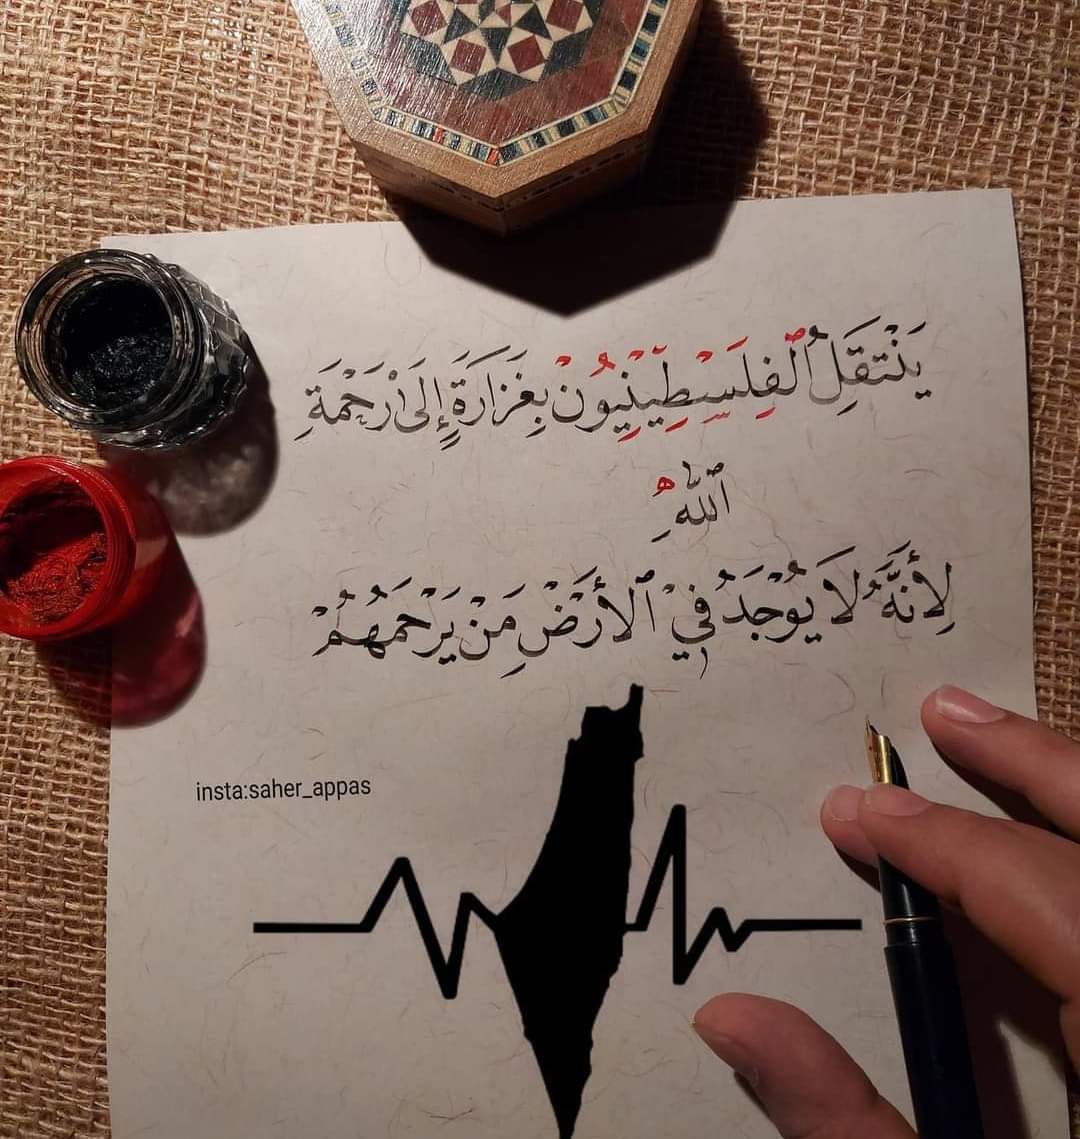 يَنْتَقِلُ ٱلْفِلَسْطِينِيُونْ بِغَزَارَةٍ إِلَىٰ رَحْمَةِ
ٱللَّهِ
لِأَنَّهُ لَا يُوْجَدُ فِيْ ٱلأَرْضِ مَنْ يَرْحَمُهُمْ
insta:saher_appas